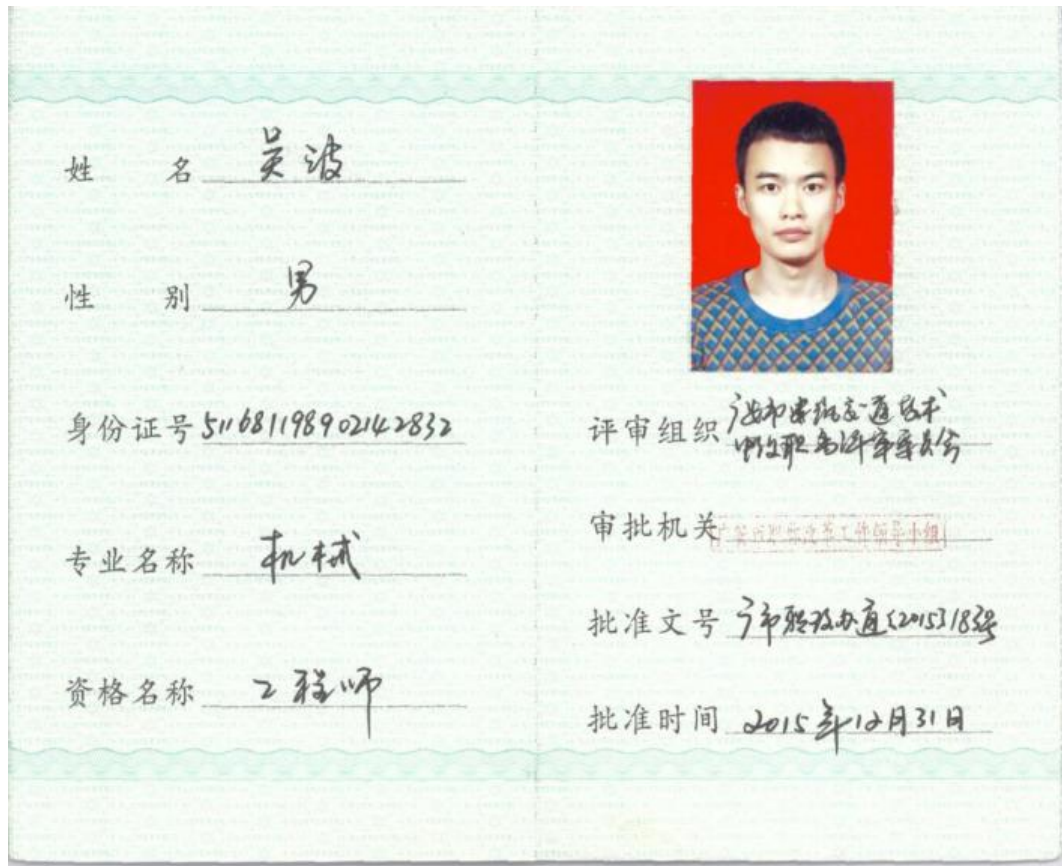 姓 名 吴波
性 别 男
身份证号 511681198902142832
专业名称 机械
资格名称 工程师
评审组织
审批机关 广安市职称改革工作领导小组
批准文号 广市职改办通〔2015〕183号
批准时间 2015年12月31日